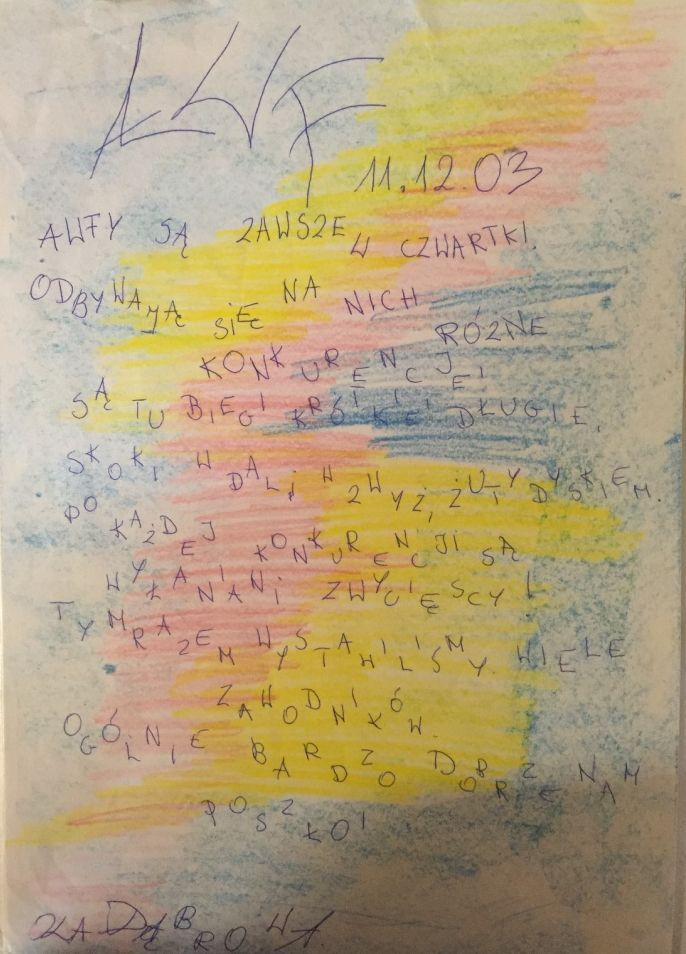 AWF
11.12.03
AWFY SĄ ZAWSZE W CZWARTKI.
ODBYWAJĄ SIĘ NA NICH RÓŻNE
KONKURENCJE!
SĄ TU BIEGI KRÓTKIE I DŁUGIE,
SKOKI W DAL I W ZWYŻ, ŻUTY DYSKIEM.
PO KAŻDEJ KONKURENCJI SĄ
WYŁANIANI ZWYCIĘSCY!
TYM RAZEM WYSTAWILIŚMY WIELE
ZAWODNIKÓW.
OGÓLNIE BARDZO DOBRZE NAM
POSZŁO!
OLA DĄBROWA.